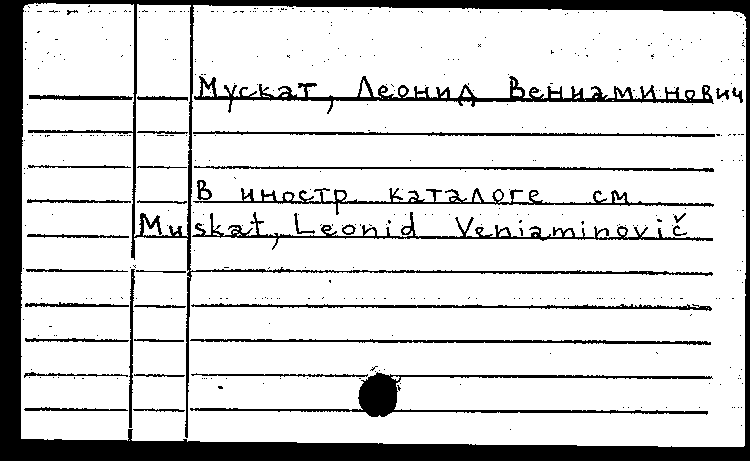 Мускат, Леонид Вениаминович
В иностр. каталоге см.
Muskat, Leonid Veniaminovič